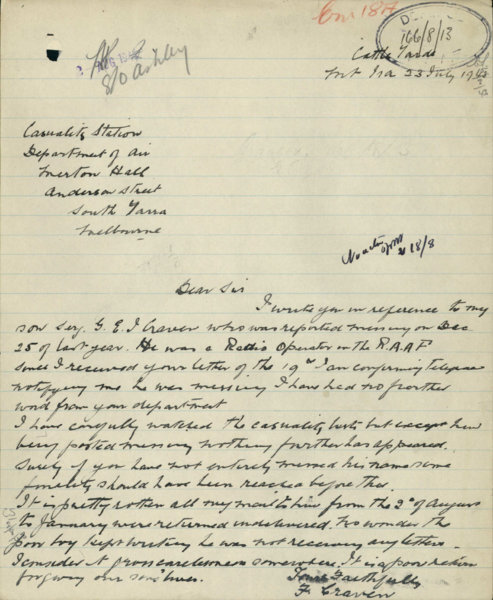 166/8/13
Cattle Yards
Mt Isa 23 July 1942
S/O Ashley
Casuality Station
Department of Air
Merton Hall
Anderson Street
South Yarra
Melbourne
18/8
Dear Sir
I write you in reference to my
son Serg. G. E. J Craven who was reported missing on Dec
25 of last year. He was a Radio Operator in the R.A.A.F
since I received your letter of the 19th Jan confirming telegram
notifying me he was missing I have had no further
word from your department
I have carefully watched the casuality lists but except him
being posted missing nothing further has appeared.
Surely if you have not entirely missed his name some
finality should have been reached before this.
It is pretty rotten all my mail to him from the 2nd of August
to January were returned undelivered. No wonder the
poor boy kept writing he was not receiving any letters.
I consider it gross carelessness somewhere. It is a poor return
for giving our sons lives.
Yours Faithfully
F Craven